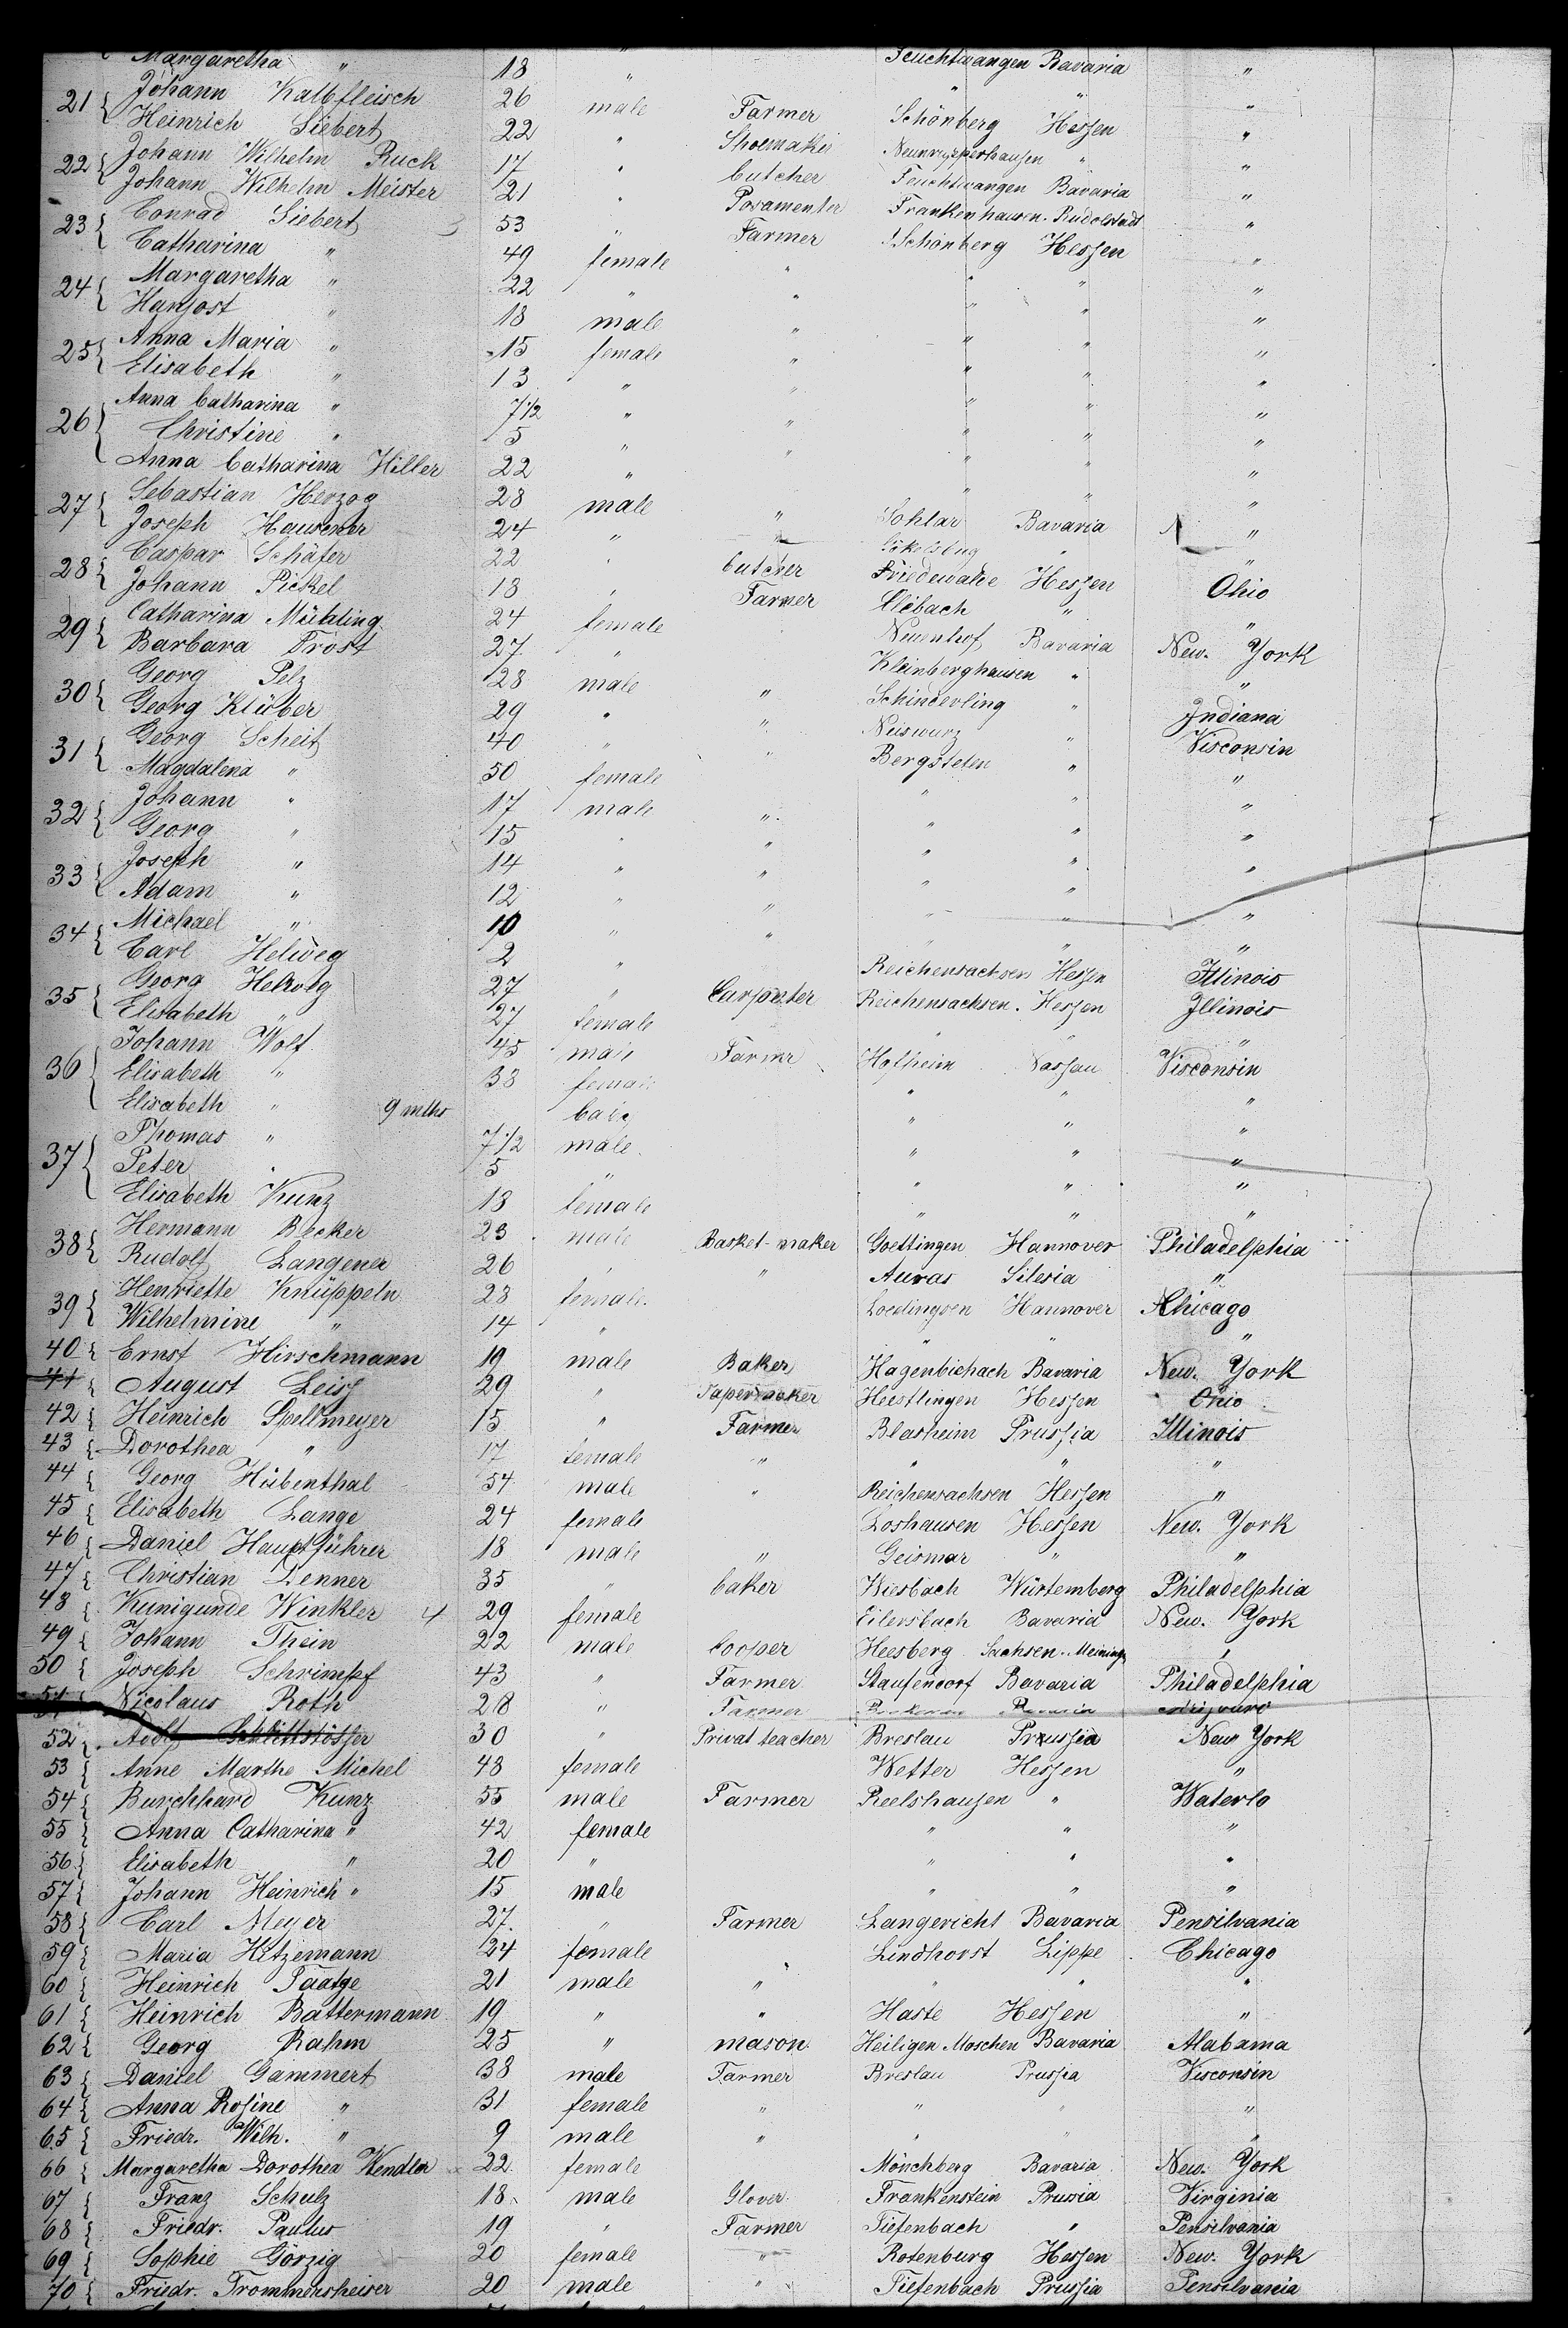 Margaretha " 18 " Feuchtwangen Bavaria "
21 { Johann Kalbfleisch 26 male Farmer " " "
Heinrich Siebert 22 " Shoemaker Schönberg Hessen "
22 { Johann Wilhelm Ruck 17 " butcher "
Johann Wilhelm Meister 21 " Posamenter Feuchtwangen Bavaria "
23 { Conrad Siebert 53 " Farmer Frankenhausen. Rudolstadt "
Catharina " 49 female " Schönberg Hessen "
24 { Margaretha " 22 " " " " "
Hanjost " 18 male " " " "
25 { Anna Maria " 15 female " " " "
Elisabeth " 13 " " " " "
26 { Anna Catharina " 7 1/2 " " " " "
Christine " 5 " " " " "
Anna Catharina Hiller 22 " " " "
27 { Sebastian Herzog 28 male " Bavaria "
Joseph 24 " " " "
28 { Caspar Schäfer 22 " butcher Friedewalde Hessen Ohio
Johann Pickel 18 " Farmer "
29 { Catharina Mühling 24 female Neuenhof Bavaria New. York
Barbara Frost 27 " Kleinberghausen " "
30 { Georg Pelz 28 male " Schinderling " Indiana
Georg Klüber 29 " " " Visconsin
31 { Georg Scheit 40 " " Bergsteten " "
Magdalena " 50 female " " "
32 { Johann " 17 male " " " "
Georg " 15 " " " " "
33 { Joseph " 14 " " " " "
Adam " 12 " " " " "
34 { Michael " 10 " " " " "
Carl Helweg 2 " Reichensachsen Hessen Illinois
35 { Georg Helweg 27 " Carpenter Reichensachsen. Hessen Illinois
Elisabeth " 27 female " "
36 { Johann Wolf 45 male Farmer Hofheim Nassau Visconsin
Elisabeth " 38 female " " "
Elisabeth " 9 mths baby " " "
37 { Thomas " 7 1/2 male " " "
Peter " 5 " " " "
Elisabeth Kunz 18 female " " "
38 { Hermann Becker 23 male Basket-maker Goettingen Hannover Philadelphia
Rudolf Langener 26 " " Auras Silesia "
39 { Henriette Knüppeln 28 female Loedingsen Hannover Chicago
Wilhelmine " 14 " " " "
40 { Ernst Hirschmann 19 male Baker Hagenbichach Bavaria New. York
41 { August Leiss 29 " Papermaker Heestlingen Hessen Ohio
42 { Heinrich Spellmeyer 15 " Farmer Blasheim Prussia Illinois
43 { Dorothea " 17 female " " " "
44 { Georg Hübenthal 54 male " Reichensachsen Hessen "
45 { Elisabeth Lange 24 female Loshausen Hessen New. York
46 { Daniel Hauptführer 18 male " Geismar " "
47 { Christian Denner 35 " baker Wiesbach Würtemberg Philadelphia
48 { Kunigunde Winkler 4 29 female Eilersbach Bavaria New. York
49 { Johann Thein 22 male Cooper Heesberg Sachsen. Meining "
50 { Joseph Schrimpf 43 " Farmer Staufendorf Bavaria Philadelphia
51 { Nicolaus Roth 28 " Farmer Bavaria
52 { 30 " Privat teacher Breslau Prussia New York
53 { Anne Marthe Michel 48 female Wetter Hessen "
54 { Burchhard Kunz 55 male Farmer Reelshausen " Waterlo
55 { Anna Catharina " 42 female " " "
56 { Elisabeth " 20 " " " "
57 { Johann Heinrich " 15 male " " "
58 { Carl Meyer 27. " Farmer Langericht Bavaria Pensilvania
59 { Maria Hitzemann 24 female Lindhorst Lippe Chicago
60 { Heinrich Taatge 21 male " " " "
61 { Heinrich Battermann 19 " " Haste Hessen "
62 { Georg Rahm 25 " mason Heiligen Moschen Bavaria Alabama
63 { Daniel Gammert 38 male Farmer Breslau Prussia Visconsin
64 { Anna Rosine " 31 female " " " "
65 { Friedr. Wilh. " 9 male " " " "
66 { Margaretha Dorothea Wendler 22 female Mönchberg Bavaria New. York
67 { Franz Schulz 18 male Glover Frankenstein Prussia Virginia
68 { Friedr. Paulus 19 " Farmer Tiefenbach " Pensilvania
69 { Sophie Görzig 20 female " Rotenburg Hessen New. York
70 { Friedr. Trommersheiser 20 male " Tiefenbach Prussia Pensilvania